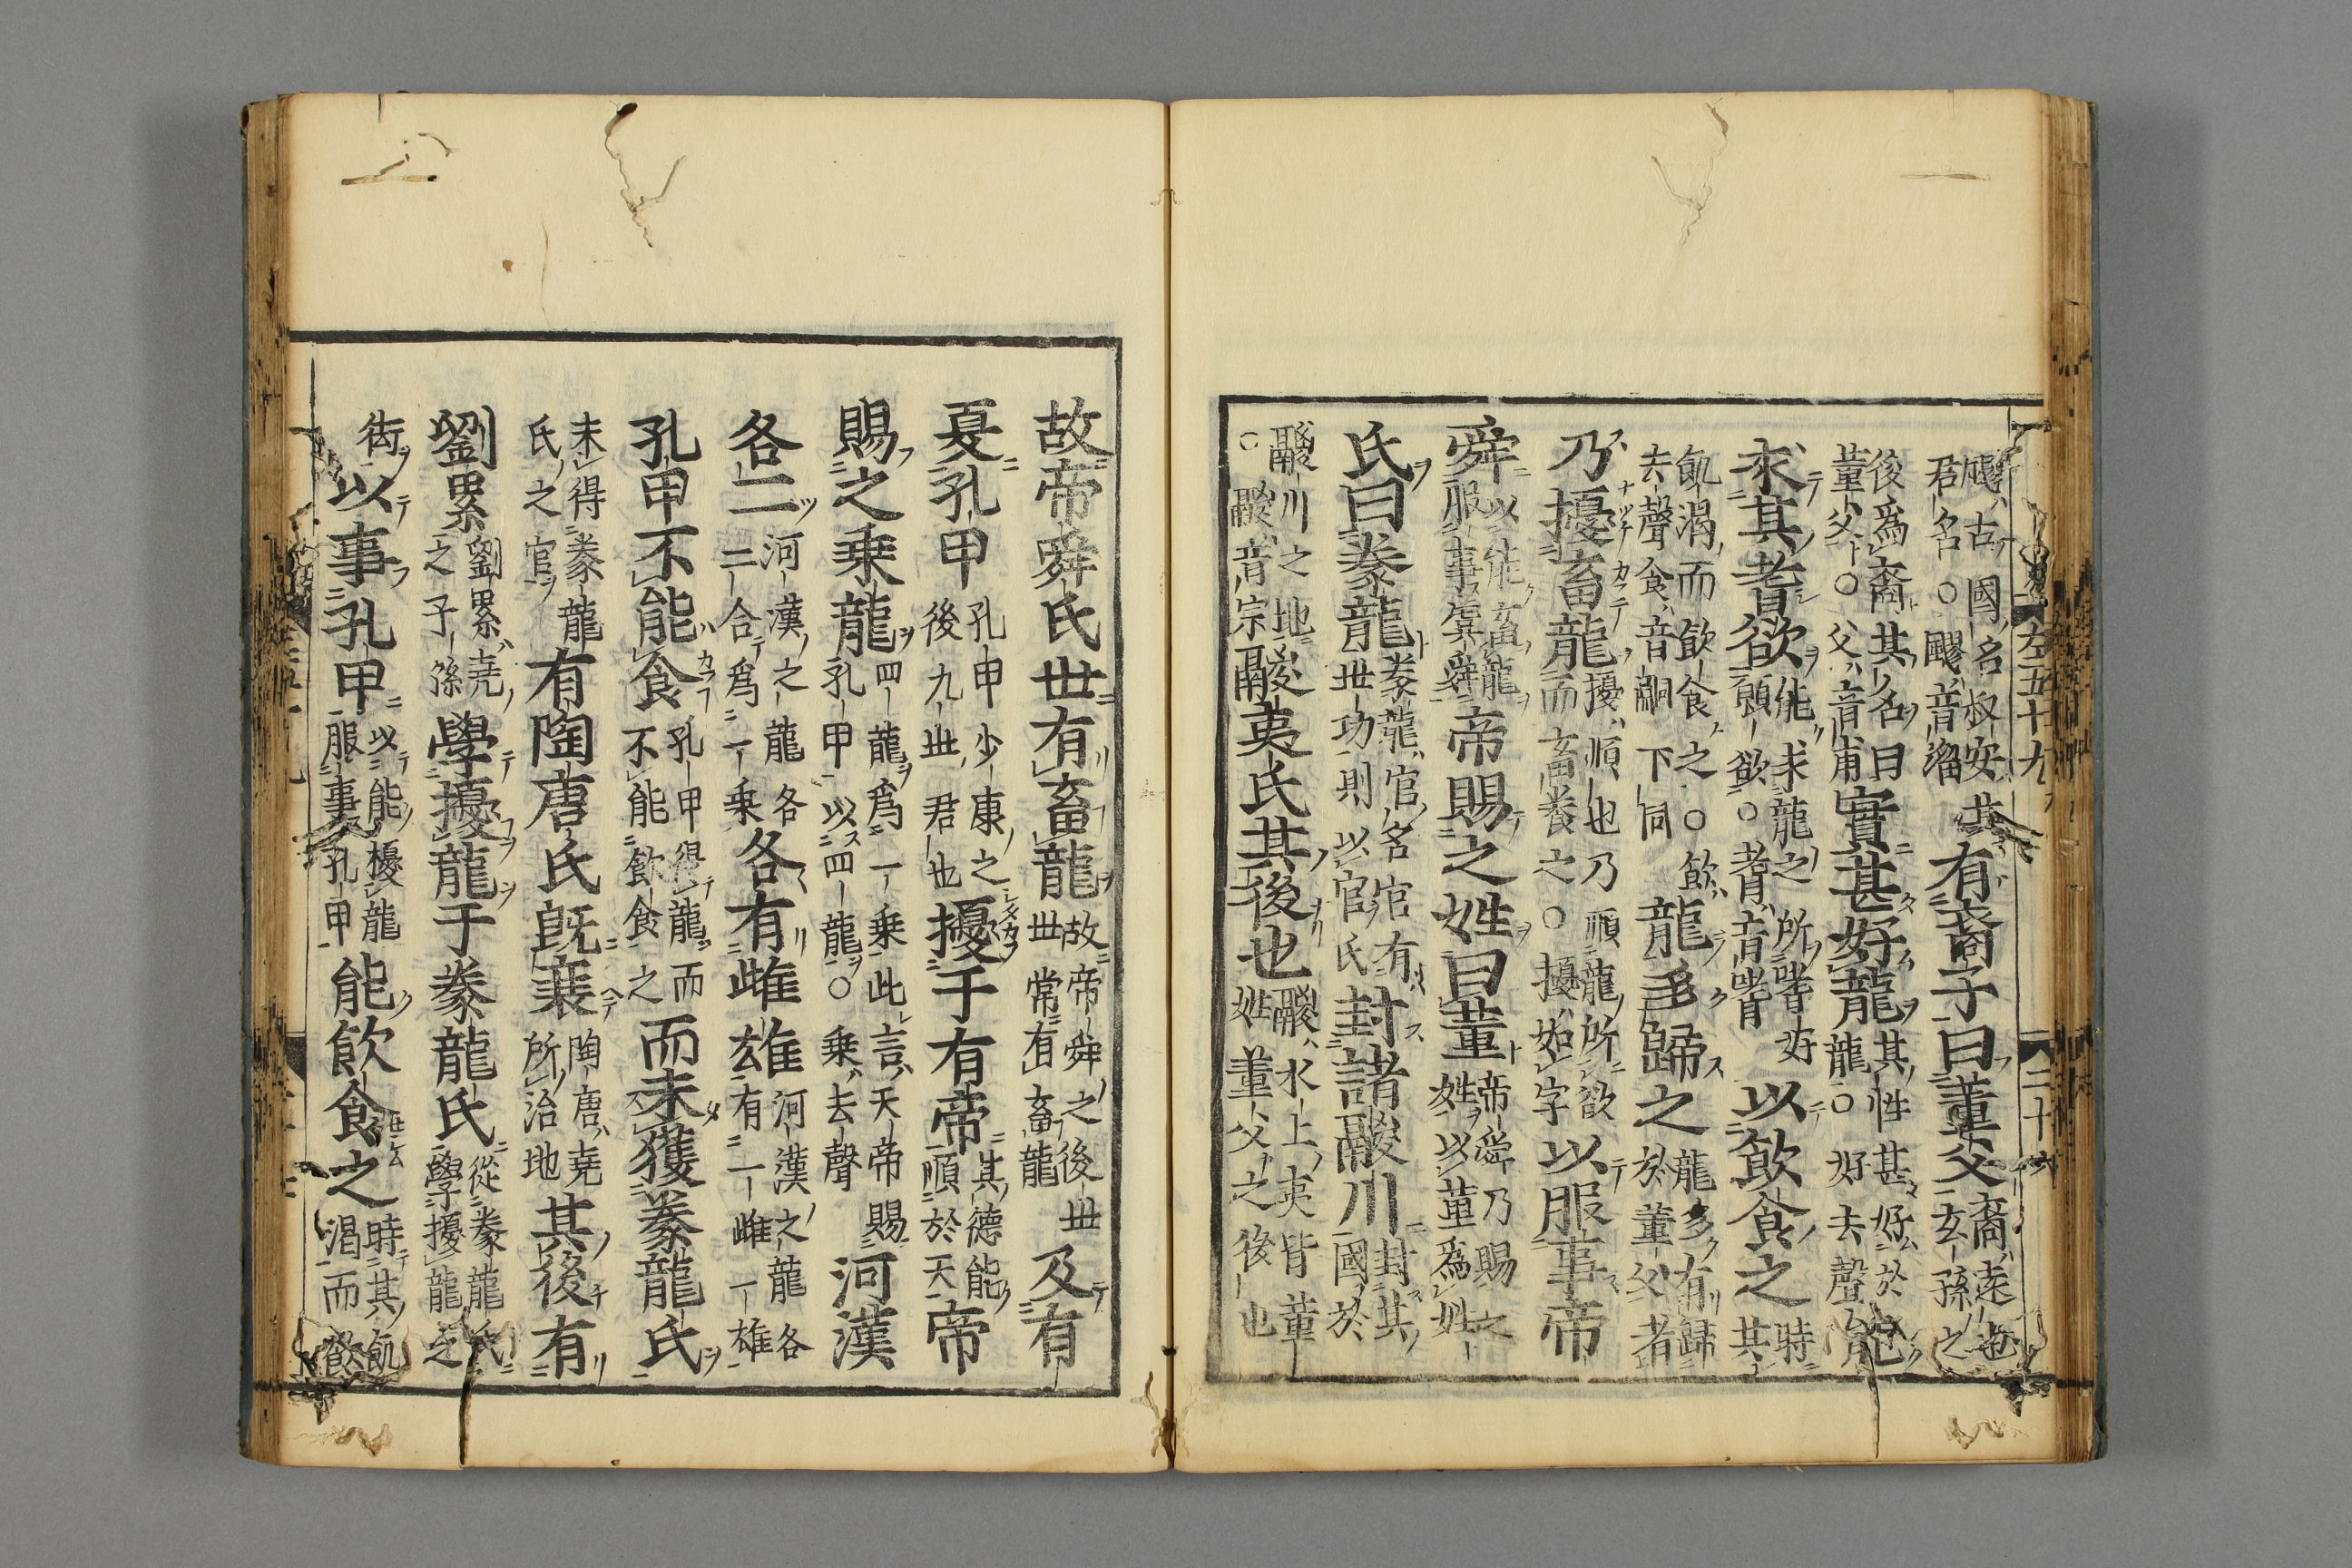 左五十九　二十六
飂古國名叔安其君名○飂音溜有裔子曰董父裔遠也玄孫之
後爲裔其名曰董父○父音甫實甚好龍其性甚好於龍○好去聲能
求其耆欲能求龍之所嗜好願欲○耆音嗜以飲食之時其
飢渴而飲食之○飲去聲食音嗣下同龍多歸之龍多有歸於董父者
乃擾畜龍擾順也乃順龍所欲而畜養之○擾如字以服事帝
舜以能畜龍服事虞舜帝賜之姓曰董帝舜乃賜之姓以董爲姓
氏曰豢龍豢龍官名官有世功則以官氏封諸鬷川封其國於
鬷川之地○鬷音宗鬷夷氏其後也鬷水上夷皆董姓董父之後也
故帝舜氏世有畜龍故帝舜之後世世常有畜龍及有
夏孔甲孔甲少康之後九世君也擾于有帝其德能順於天帝
賜之乘龍四龍爲一乘此言天帝賜孔甲以四龍○乘去聲河漢
各二河漢之龍各二合爲一乘各有雌雄河漢之龍各有一雌一雄
孔甲不能食孔甲得龍而不能飲食之而未獲豢龍氏
未得豢龍氏之官有陶唐氏既衰陶唐堯所治地其後有
劉累劉累堯之子孫學擾龍于豢龍氏從豢龍氏學擾龍之
術以事孔甲以能擾龍服事孔甲能飲食之時其飢渴而飲